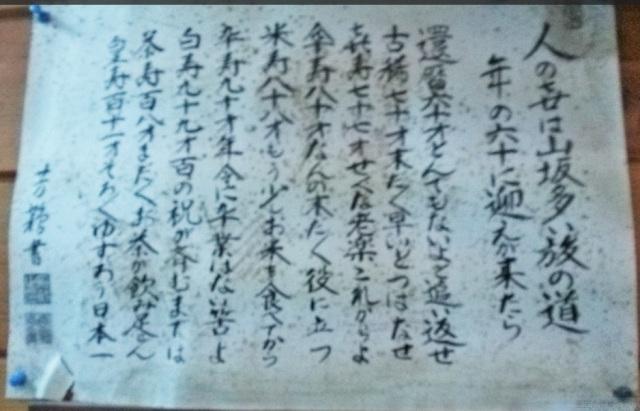 人の世は山坂多い旅の道
年の六十に迎えが来たら
還暦六十才とんでもないよと追い返せ
古稀七十才まだまだ早いとつぱなせ
喜寿七十七才せくな老楽これからよ
傘寿八十才なんのまだまだ役に立つ
米寿八十八才もう少しお米を食べてから
卒寿九十才年令に卒業はない筈よ
白寿九十九才百の祝が済むまでは
茶寿百八才まだまだお茶が飲み足らん
皇寿百十一才そろそろゆずろう日本一
書